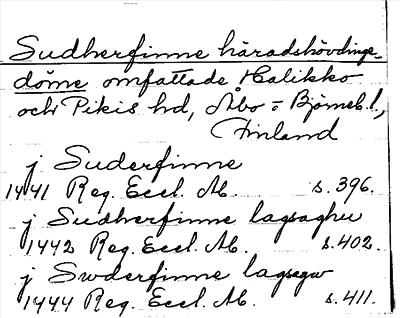 Sudherfinne häradshövdinge-
döme omfattade Halikko
och Pikis hd, Åbo = Björneb. l.,
Finland
j Suderfinne
1441 Reg. Eccl. Ab. s. 396.
j Sudherfinne lagsaghu
1442 Reg. Eccl. Ab. s. 402.
j Swderfinne lagsagw
1444 Reg. Eccl. Ab. s. 411.